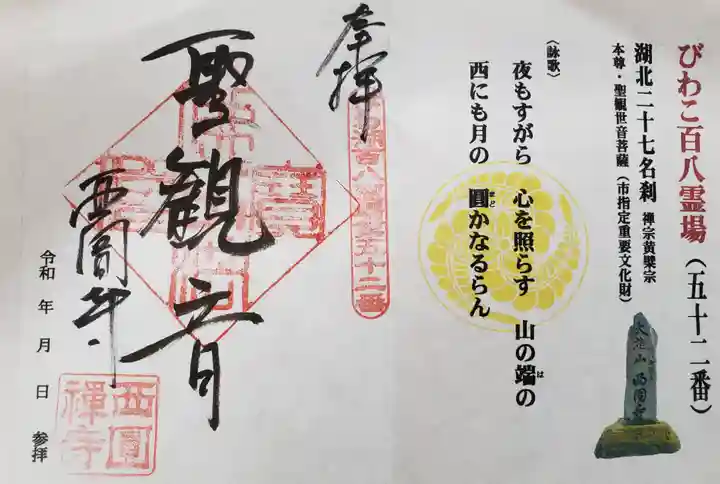 びわこ百八霊場（五十二番）
湖北二十七名刹 禅宗黄檗宗
本尊・聖観世音菩薩（市指定重要文化財）
大龍山 西圓寺
〈詠歌〉
夜もすがら 心を照らす 山の端の
は
西にも月の 圓かなるらん
まど
奉拝
聖観音
西圓寺
令和 年 月 日 参拝
西圓
禅寺